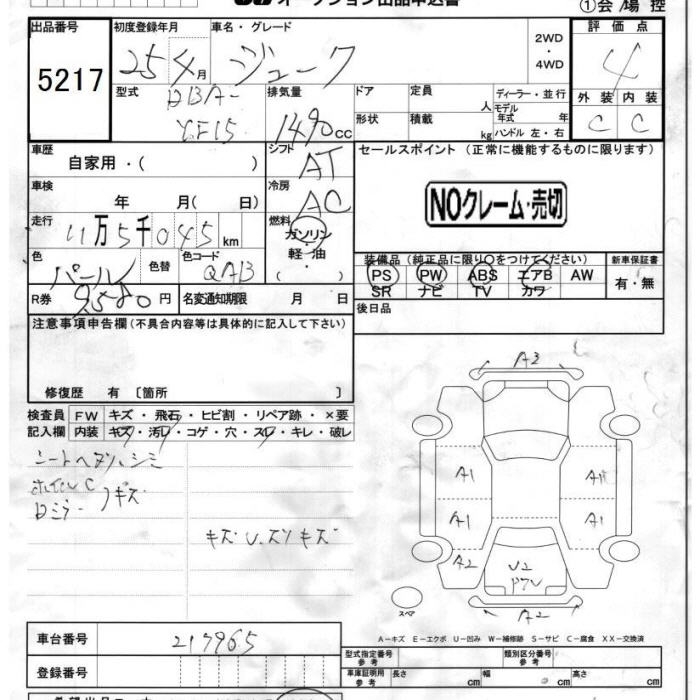 オークション出品申込書
①会場控
出品番号
5217
初度登録年月
25 4月
車名・グレード
ジューク
2WD
・
4WD
評価点
4
外装 内装
C C
型式
DBA-
YF15
排気量
1490cc
ドア
定員
人
形状
積載
kg
ディーラー・並行
モデル年式 年
ハンドル 左・右
車歴
自家用・( )
シフト
AT
セールスポイント (正常に機能するものに限ります)
NOクレーム・売切
車検
年 月( 日)
冷房
AC
走行
11万5千045km
燃料
ガソリン
・
軽油
( )
色
パール
色替
色コード
QAB
R券
9580円
名変通知期限 月 日
装備品(純正品に限り○をつけてください)
PS PW ABS エアB AW
SR ナビ TV カワ
新車保証書
有・無
後日品
注意事項申告欄(不具合内容等は具体的に記入して下さい)
修復歴 有 〔箇所 〕
検査員 FW キズ・飛石・ヒビ割・リペア跡・×要
記入欄 内装 キズ・汚レ・コゲ・穴・スレ・キレ・破レ
シートヘタリ、シミ
ホイルC
Dミラー
キズ
キズ U.スリキズ
A3
A1
A1
A1
A1
A2
U2
A2
スペア
A-キズ E-エクボ U-凹み W-補修跡 S-サビ C-腐食 XX-交換済
車台番号
217965
登録番号
型式指定番号
参考
類別区分番号
参考
車庫証明用
参考
長さ cm 幅 cm 高さ cm